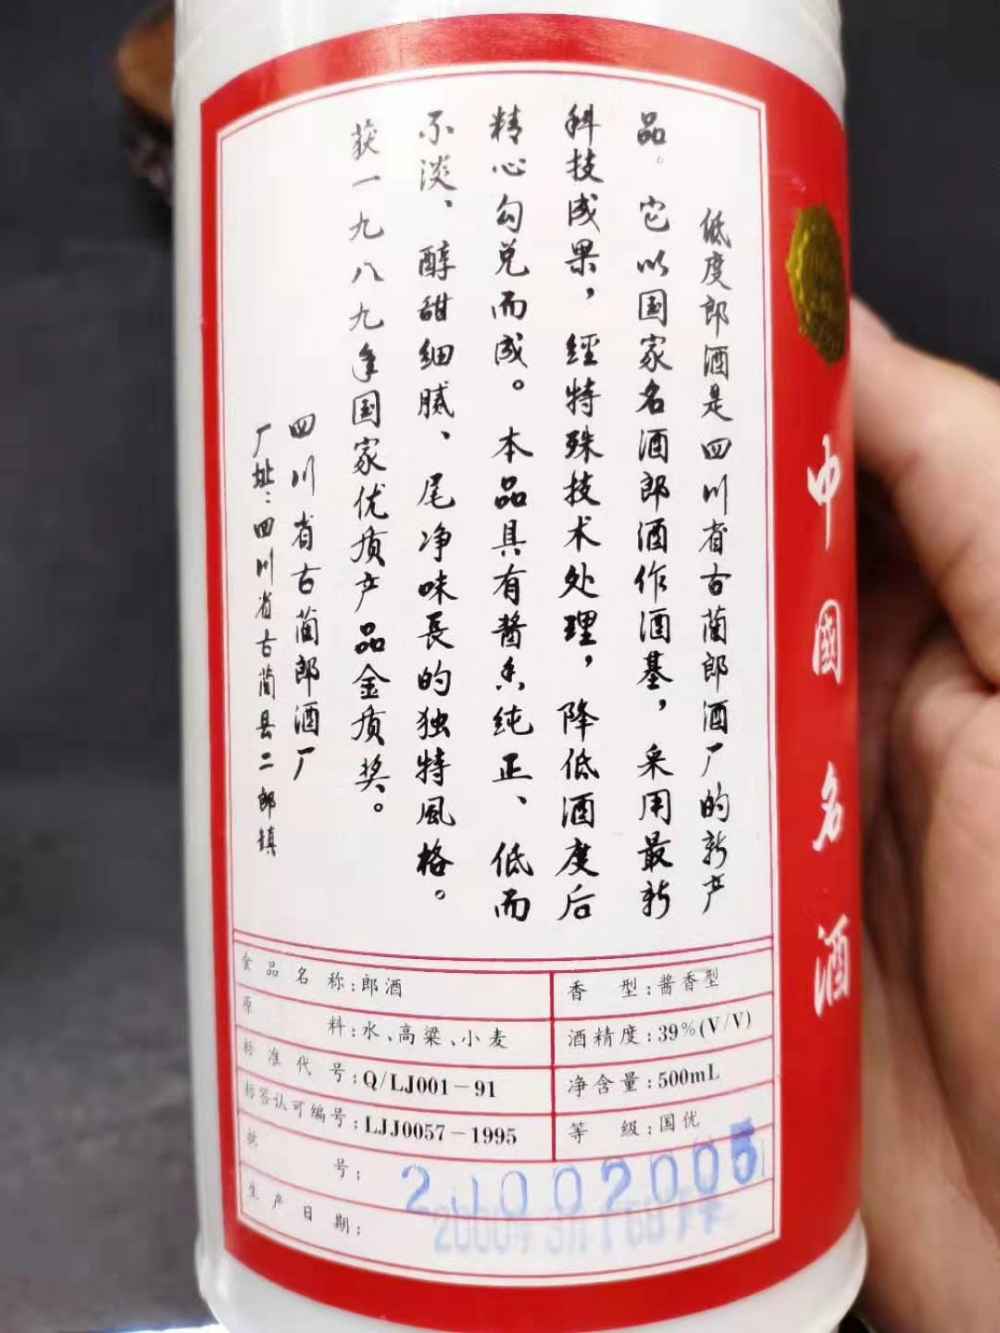 低度郎酒是四川省古蔺郎酒厂的新产
品。它以国家名酒郎酒作酒基，采用最新
科技成果，经特殊技术处理，降低酒度后
精心勾兑而成。本品具有酱香纯正、低而
不淡、醇甜细腻、尾净味長的独特風格。
获一九八九年国家优质产品金质奖。
四川省古蔺郎酒厂
厂址：四川省古蔺县二郎镇
中國名酒
食品名称：郎酒
香型：酱香型
原料：水、高粱、小麦
酒精度：39%(V/V)
标准代号：Q/LJ001－91
净含量：500mL
标签认可编号：LJJ0057－1995
等级：国优
批号：
生产日期：